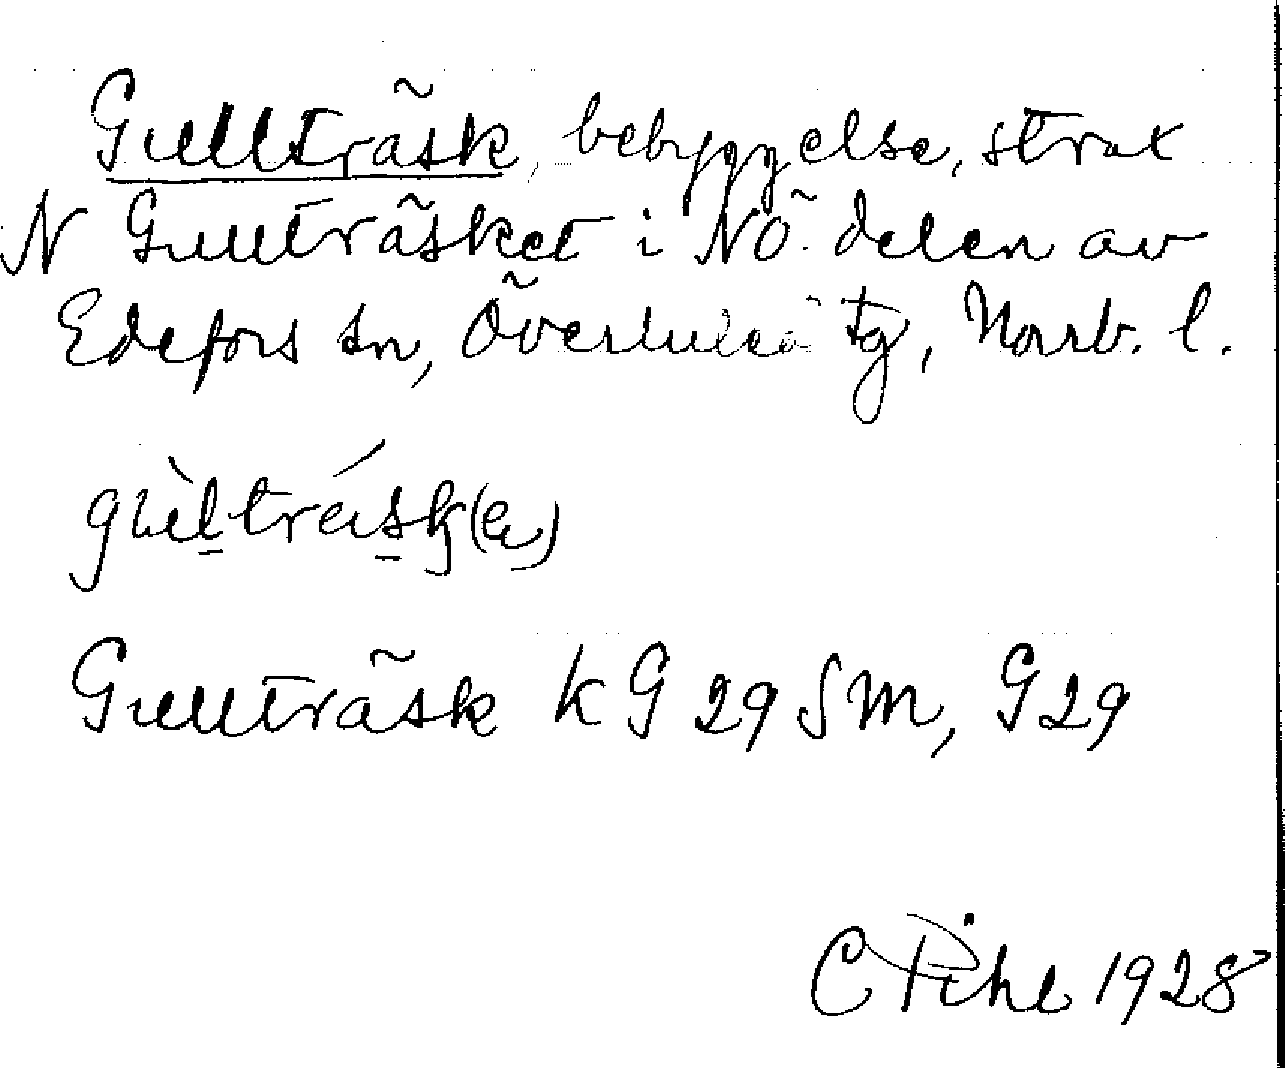 Gullträsk, bebyggelse, strax
N Gullträsket i NÖ. delen av
Edefors sn, Överluleå tg, Norrb. l.
gùltrésk(e)
Gullträsk k G 29 SM, G 29
C Pihl 1928